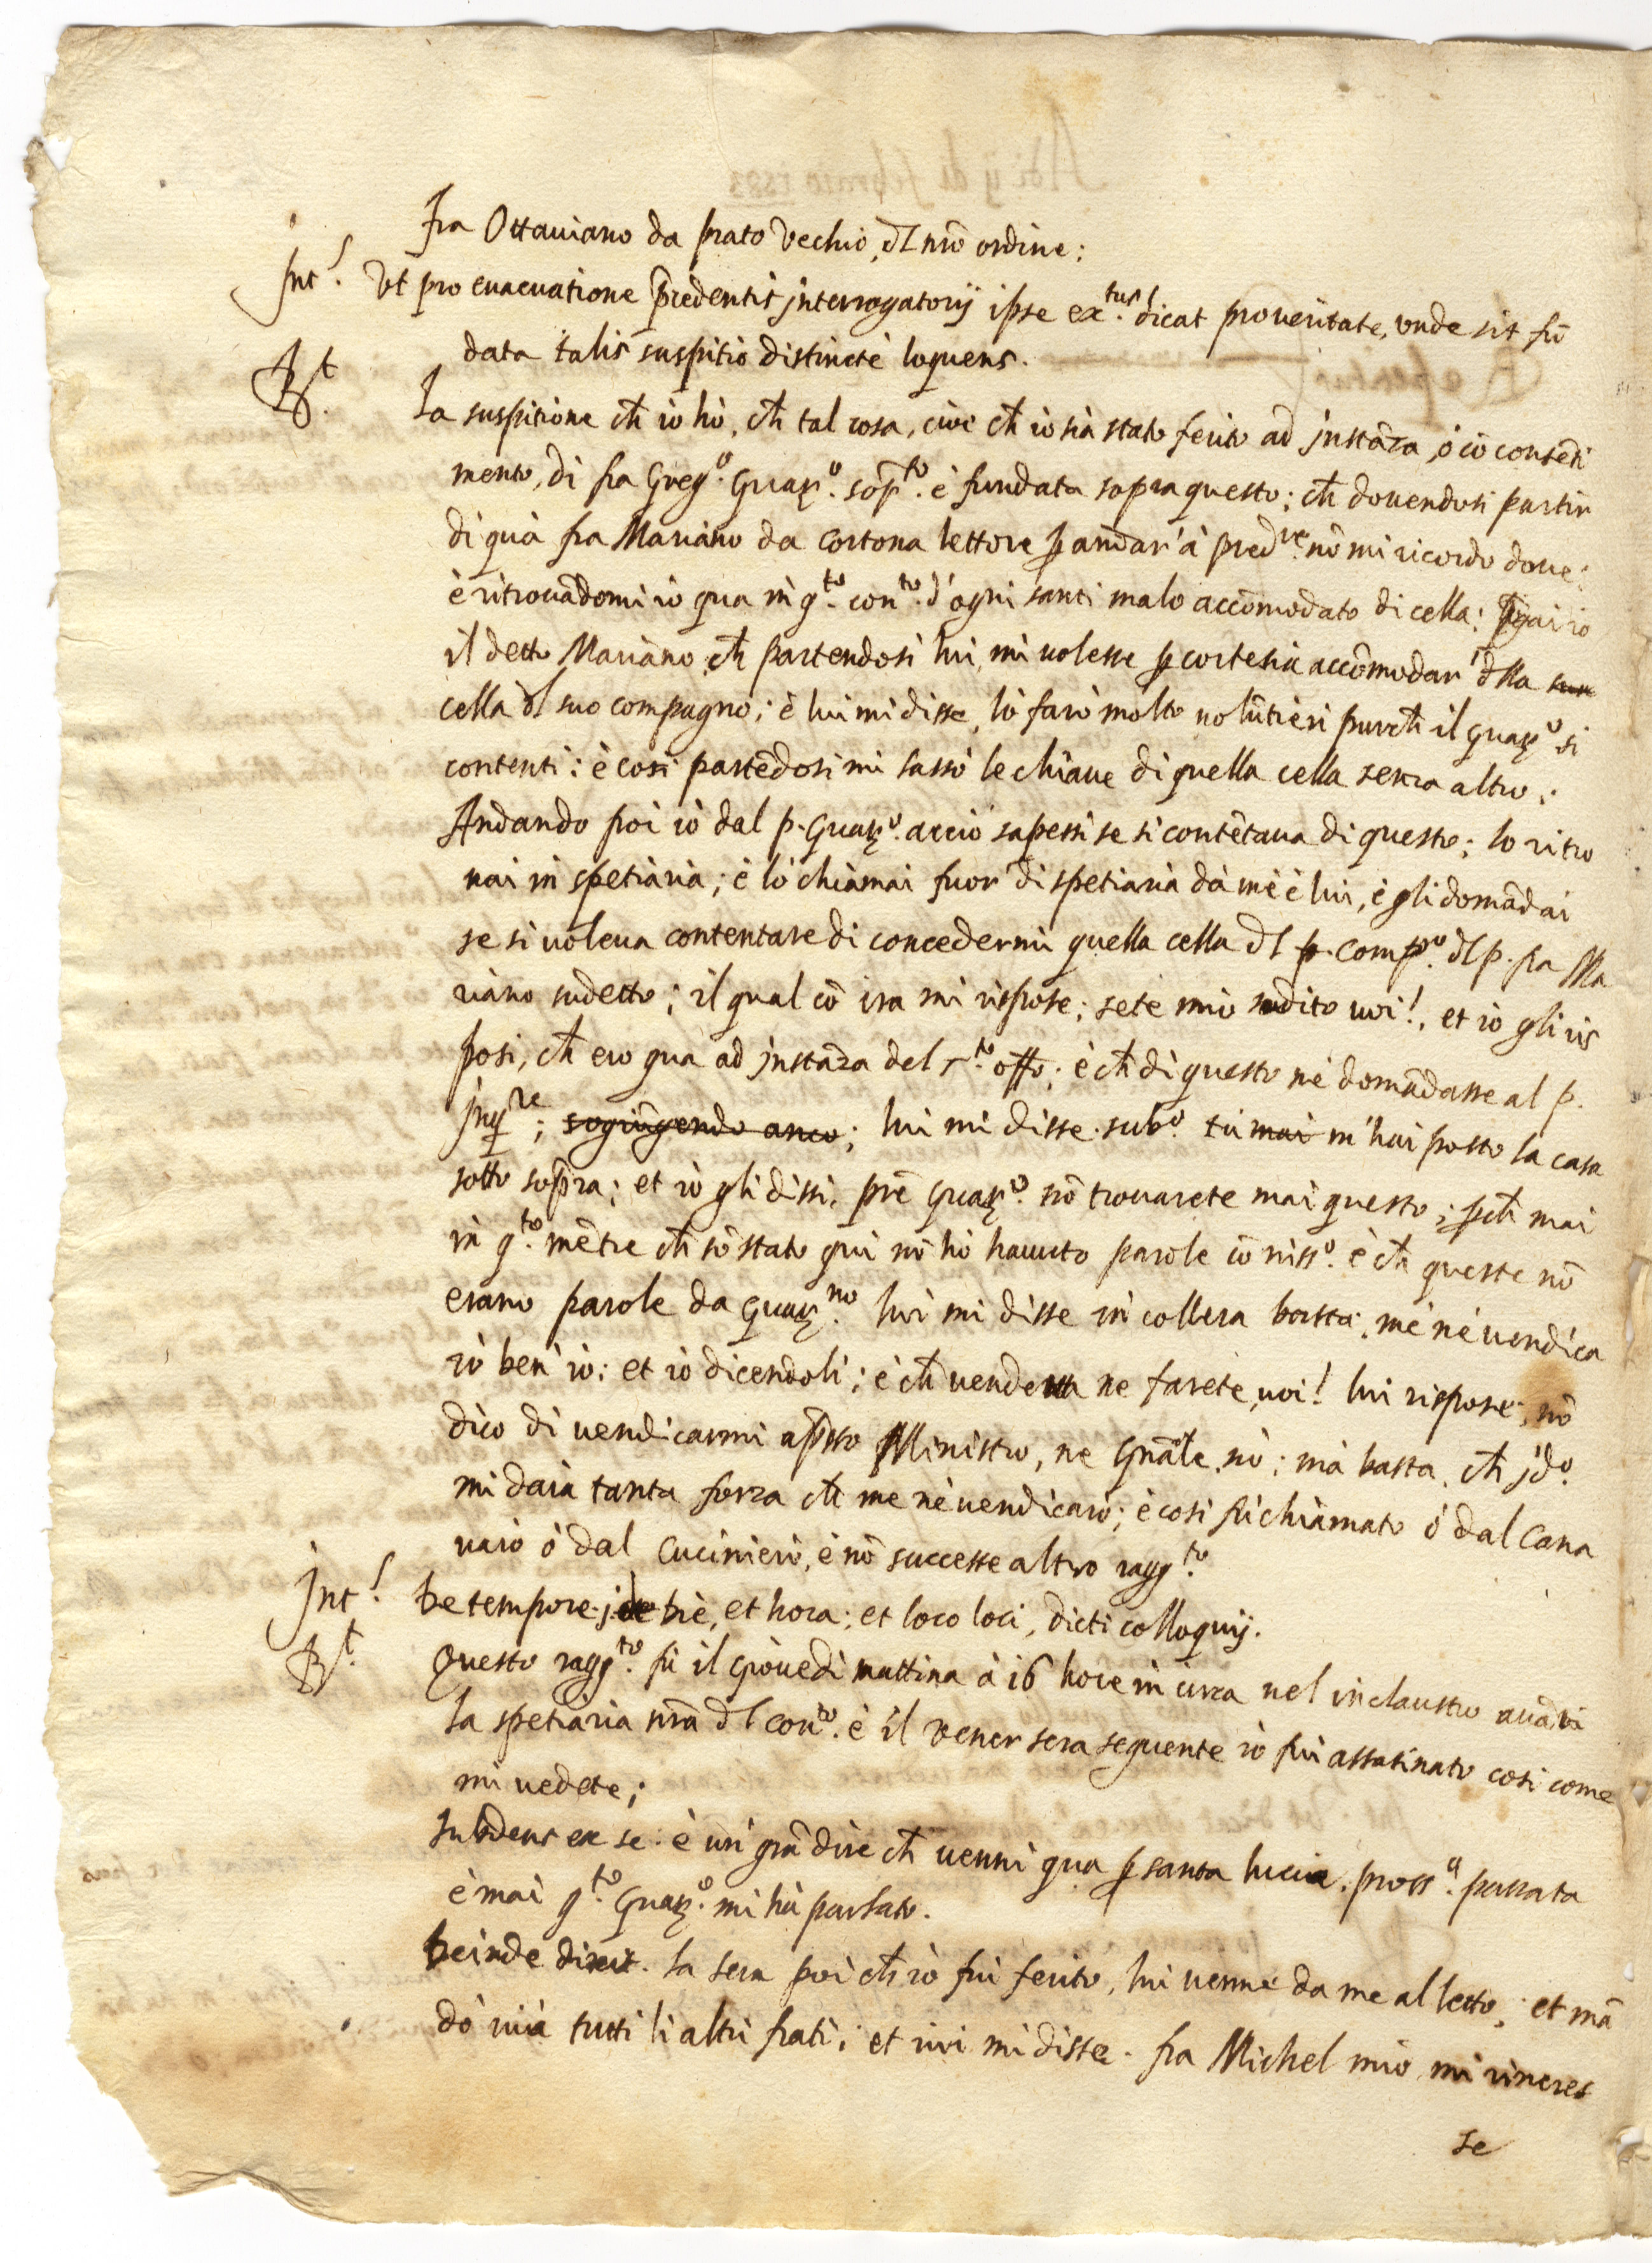 fra Ottauiano da prato Vechio, dl nrō ordine:
Int.s Vt pro euacuatione p̄cedentis interrogatorij ipse ex.tus dicat pro ueritate, unde sit fū
data talis suspitio distincte loquens.
R.t La suspitione ch̄ io hò, ch̄ tal cosa, cioè ch̄ io sia stato ferito ad instāza, ò cō consēti
mento, di fra Greg.o Guar.o sop.to è fundata sopra questo; ch̄ douendosi partir
di quà fra Mariano da Cortona lettore ꝑ andar' à pred.re nō mi ricordo doue;
è ritrouādomi io qua in q.to con.to d'ogni santi malo accōmodato di cella; pgai io
il detto Mariano, ch̄ partendosi lui, mi uolesse ꝑ cortesia accōmodar' dlla sua
cella dl suo compagno; è lui mi disse, lò farò molto uolūtieri purch̄ il Guar.o si
contenti; è cosi partēdosi mi lassò le chiaue di quella cella senza altro;
Andando poi iò dal p. Guar.o acciò sapessi se si contētaua di questo; lo ritro
uai in spetiaria; è lò chiamai fuor' di spetiaria da mè è lui, è gli domādai
se si uoleua contentare di concedermi quella cella dl p. comp.o dl p. fra Ma
riano sudetto; il qual cō ira mi rispose; sete mio sudito uoi!, et iò gli ris
posi, ch̄ ero qua ad instāza del s.to offo; è ch̄ di questo nè domādasse al p.
Inq.re; sogiūgendo anco; lui mi disse. sub.o tù mai m'hai posto la casa
sotto sopra; et iò gli dissi, prē Guar.o nō trouarete mai questo; ꝑch̄ mai
in q.to mētre ch̄ sō stato quì nō hò hauuto parole cō niss.o è ch̄ queste nō
erano parole da Guar.no lui mi disse in collera basta, mè nè uendica
rò ben' iò; et iò dicendoli; è ch̄ uendetta ne farete, uoi! lui rispose; nō
dico di uendicarmi ap̄sso Ministro, ne Gnāle, nò; mà basta, ch̄ jd.o
mi darà tanta forza ch̄ me nè uendicarò; è cosi fù chiamato ò dal Cana
uaio ò dal Cuciniero, è nō successe altro ragg.to
Int.s De tempore, die, et hora; et loco loci, dicti colloquij.
R.t Questo ragg.to fù il giòuedì mattina à 16 hore in circa nel inclaustro auāti
la spetiaria nrā dl con.to è il uener sera seguente iò fui assasinato cosi come
mi uedete;
Subdens ex se. è un' grā dire ch̄ uenni qua ꝑ santa lucia, pross.a passata
è mai q.to Guar.o mi hà parlato.
Deinde dixit. la sera poi ch̄ iò fui ferito, lui uenne da me al letto; et mā
dò uià tutti li altri frati; et iui mi disse. fra Michel mio, mi rincres
se